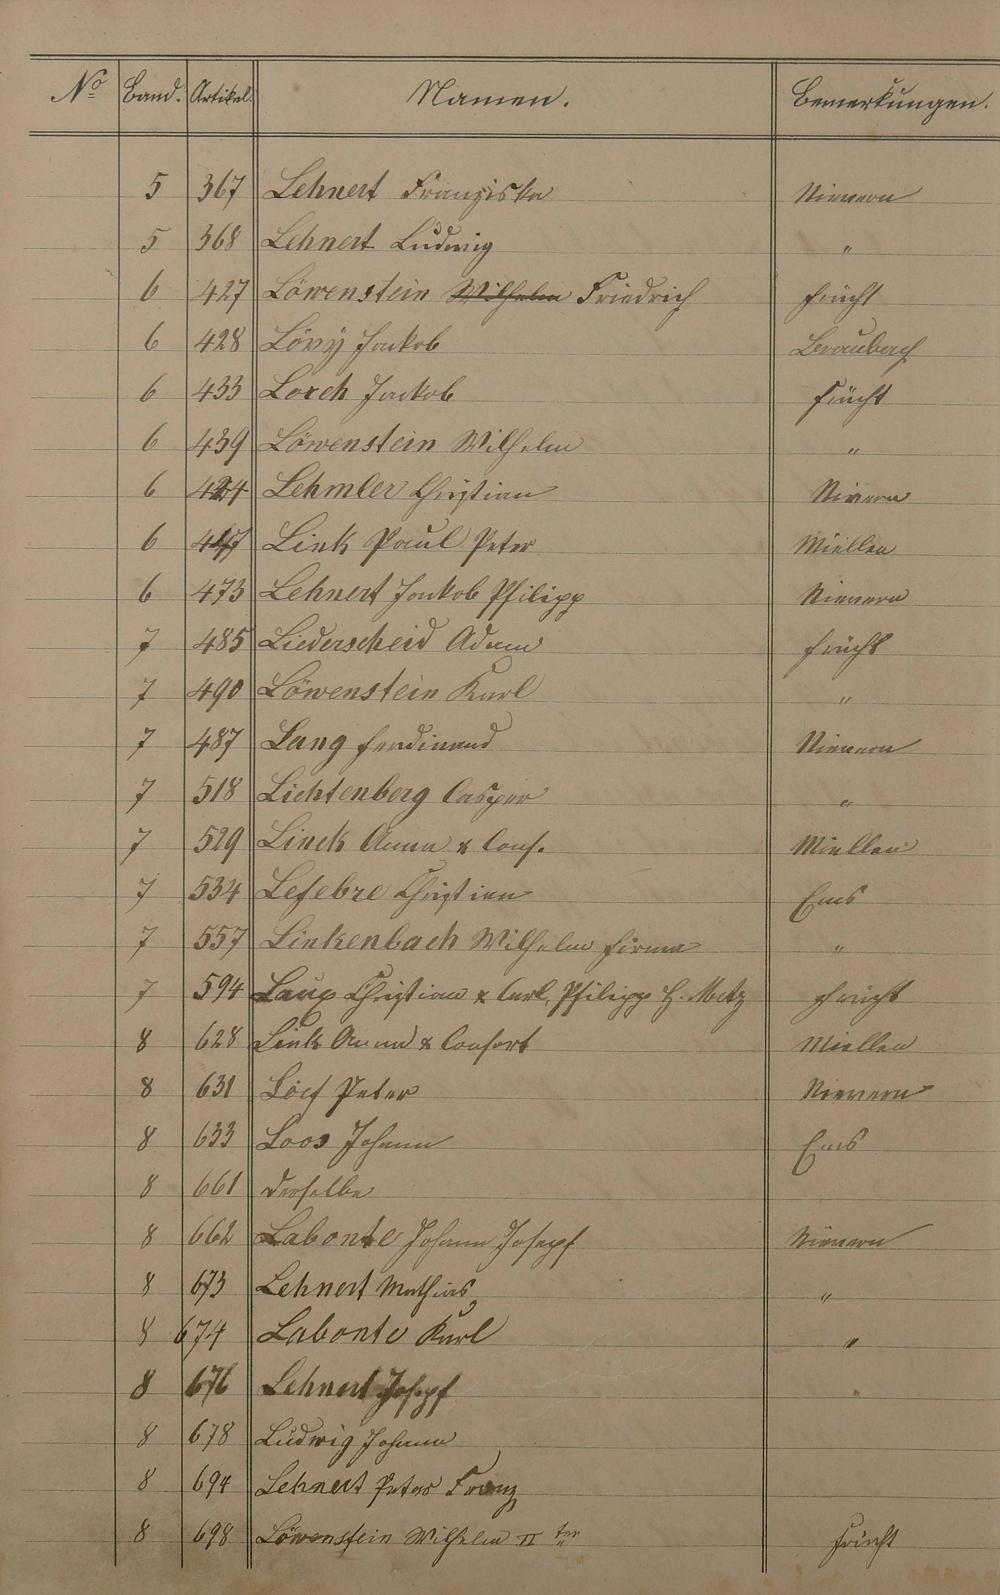 No Band. Artikel. Namen. Bemerkungen.
5 367 Lehnert Franziska Nievern
5 368 Lehnert Ludwig "
6 427 Löwenstein Wilhelm Friedrich Frücht
6 428 Lövÿ Jackob Braubach
6 433 Lorch Jackob Frücht
6 439 Löwenstein Wilhelm "
6 Lehmler Christian Nievern
6 Link Paul Peter Miellen
6 473 Lehnert Jackob Philipp Nievern
7 485 Liederscheid Adam Frücht
7 490 Löwenstein Karl "
7 487 Lang Ferdinand Nievern
7 518 Lichtenberg Casper "
7 529 Linck Anna & Cons. Miellen
7 534 Lefebre Christian Ems
7 557 Linkenbach Wilhelm Firma "
7 594 Laux Christian & Carl, Philipp H. Metz Frücht
8 628 Link Anna & Consort Miellen
8 631 Peter Nievern
8 633 Loos Johann Ems
8 661 Derselbe
8 662 Labonte Johann Josepf Nievern
8 673 Lehnert Mathias "
8 674 Labonte Karl "
8 676 Lehnert Josepf
8 678 Ludwig Johann
8 694 Lehnert Peter Franz
8 698 Löwenstein Wilhelm II ter Frücht